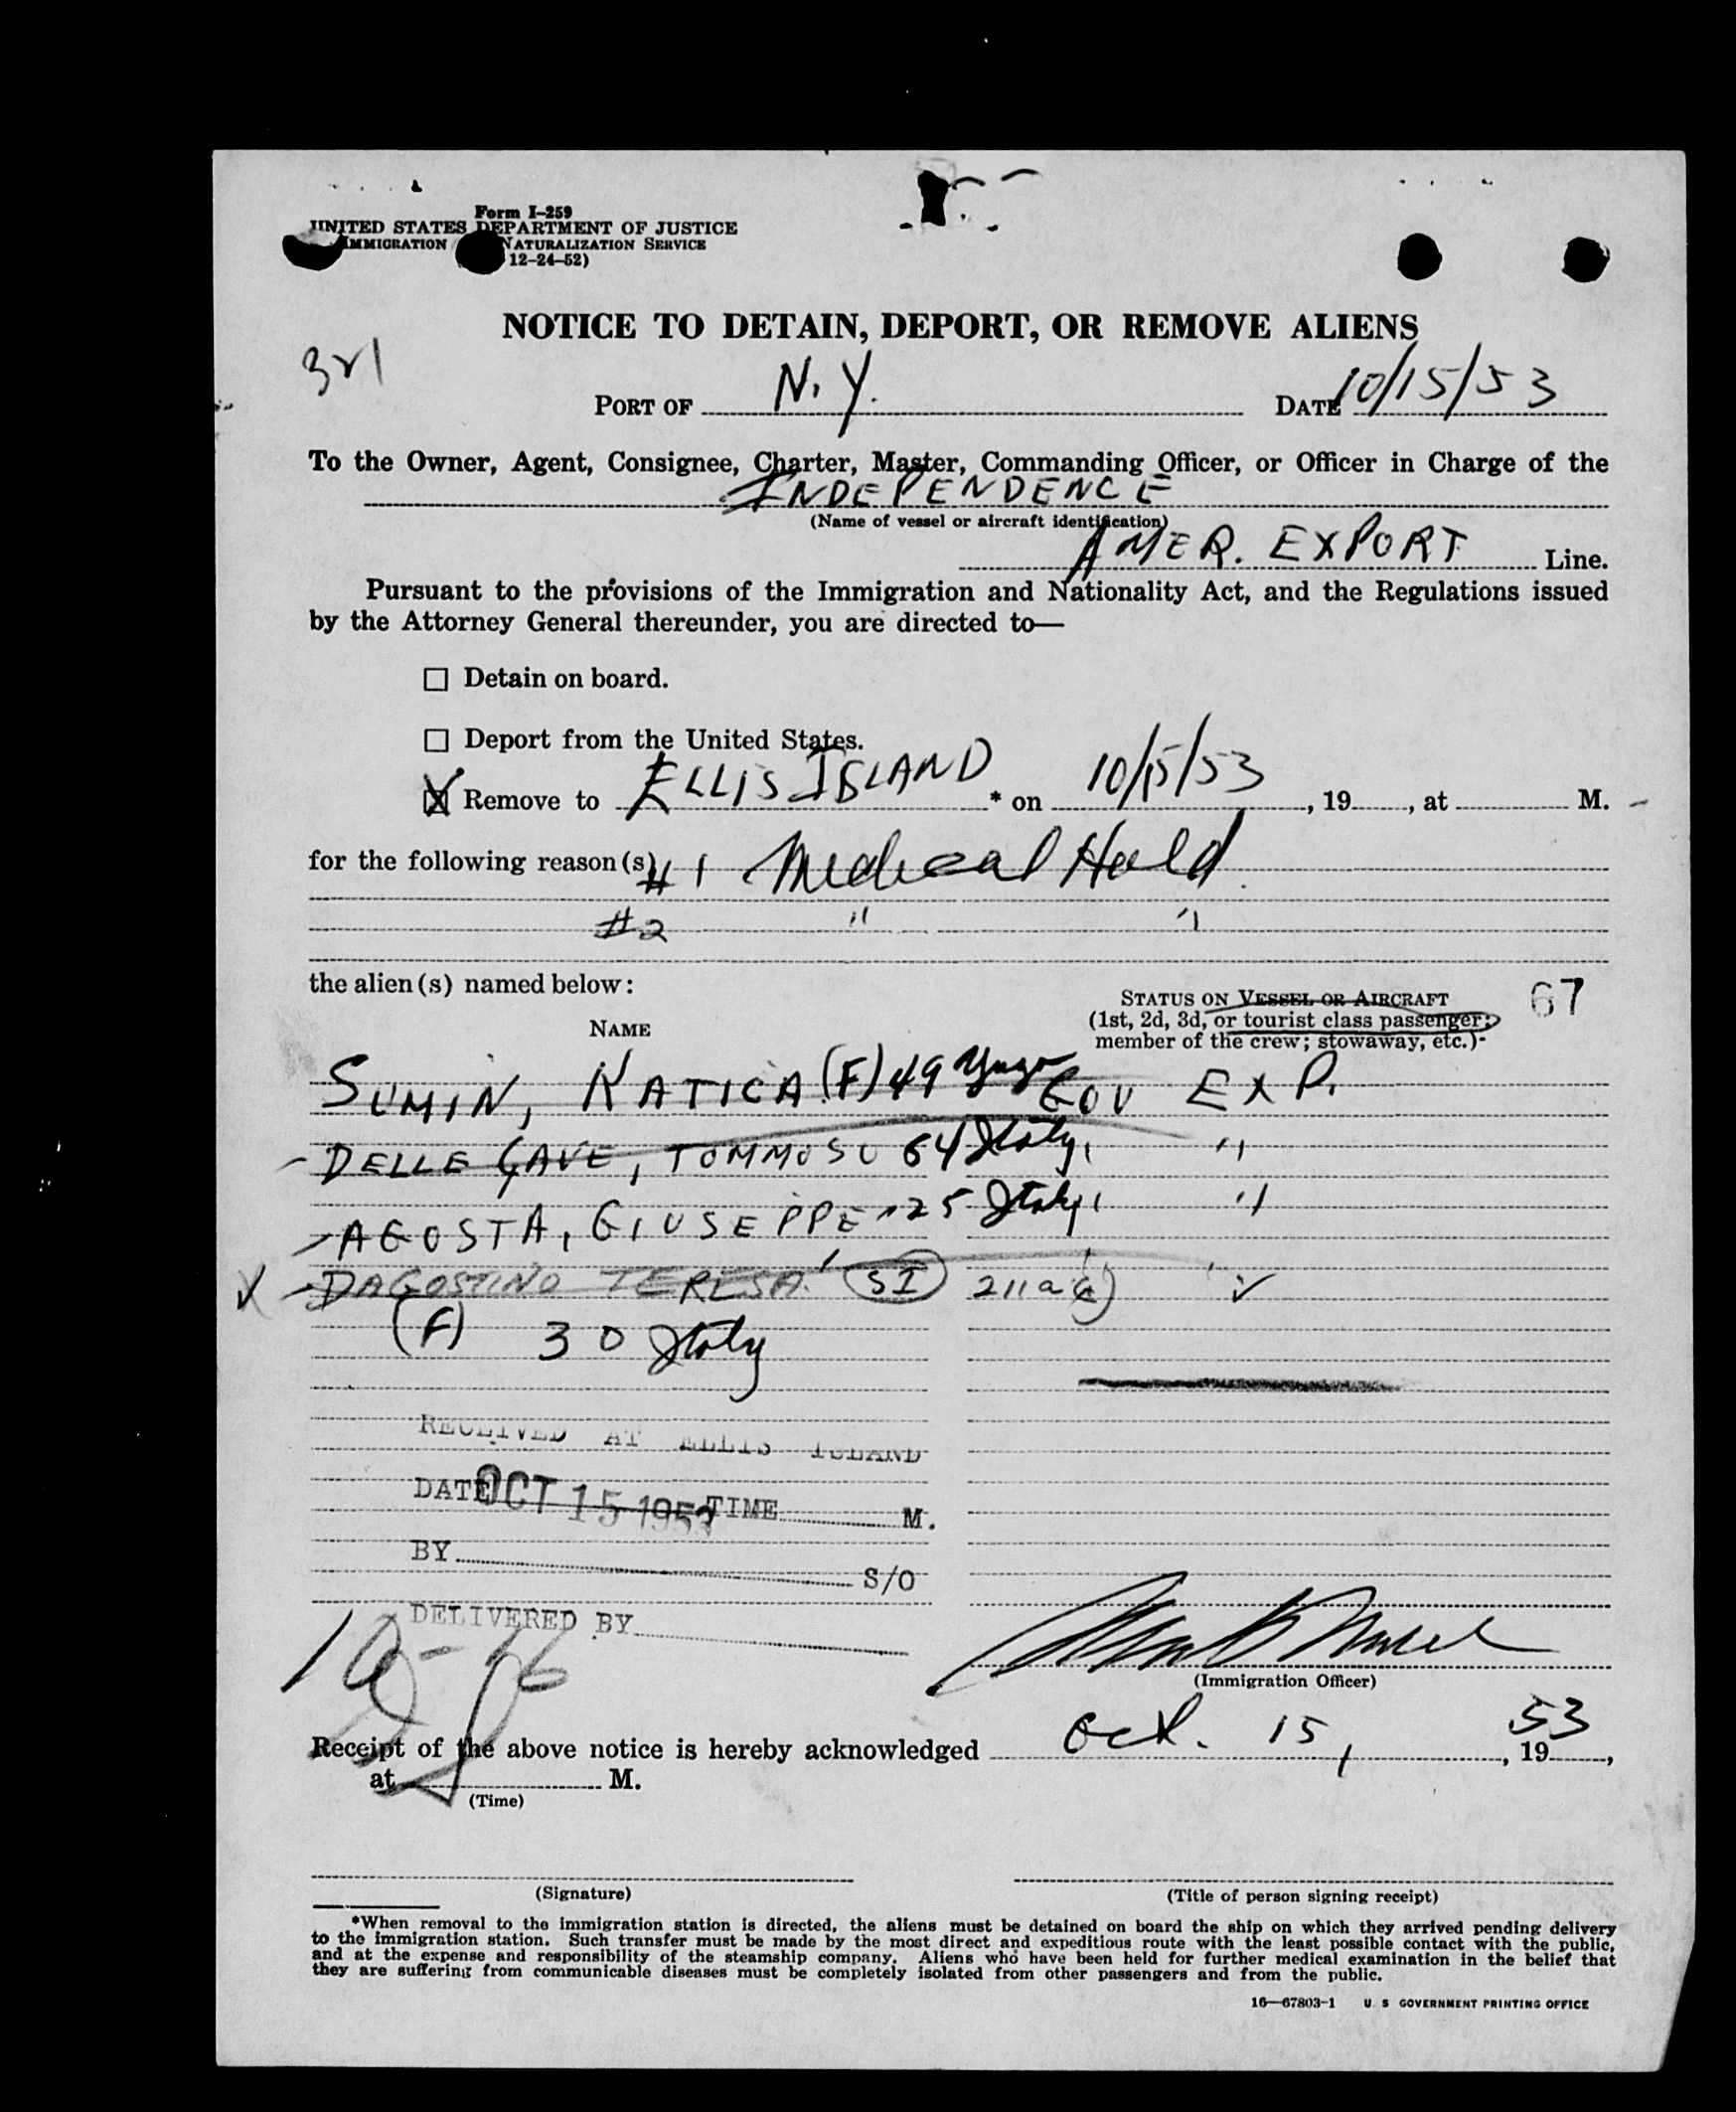 Form I-259
UNITED STATES DEPARTMENT OF JUSTICE
IMMIGRATION NATURALIZATION SERVICE
12-24-52)
NOTICE TO DETAIN, DEPORT, OR REMOVE ALIENS
321
PORT OF N.Y. DATE 10/15/53
To the Owner, Agent, Consignee, Charter, Master, Commanding Officer, or Officer in Charge of the
INDEPENDENCE
(Name of vessel or aircraft identification)
AMER. EXPORT Line.
Pursuant to the provisions of the Immigration and Nationality Act, and the Regulations issued
by the Attorney General thereunder, you are directed to—
☐ Detain on board.
☐ Deport from the United States.
☒ Remove to ELLIS ISLAND * on 10/15/53, 19, at M.
for the following reason(s) #1 Medical Hold
#2 " "
the alien(s) named below:
STATUS ON VESSEL OR AIRCRAFT 67
NAME (1st, 2d, 3d, or tourist class passenger;
member of the crew; stowaway, etc.)
SUMIN, KATICA (F) 49 Yugo GOV EXP.
- DELLE CAVE, TOMMOSO 64 Italy, "
- AGOSTA, GIUSEPPE 25 Italy, "
✓ - DAGOSTINO TERESA SI 211a ✓
(F) 30 Italy
RECEIVED AT ELLIS ISLAND
DATE OCT 15 1953 TIME M.
BY S/O
DELIVERED BY
10-16
(Immigration Officer)
Receipt of the above notice is hereby acknowledged Oct. 15, , 1953,
at M.
(Time)
(Signature) (Title of person signing receipt)
*When removal to the immigration station is directed, the aliens must be detained on board the ship on which they arrived pending delivery
to the immigration station. Such transfer must be made by the most direct and expeditious route with the least possible contact with the public,
and at the expense and responsibility of the steamship company. Aliens who have been held for further medical examination in the belief that
they are suffering from communicable diseases must be completely isolated from other passengers and from the public.
16—67803-1 U. S GOVERNMENT PRINTING OFFICE